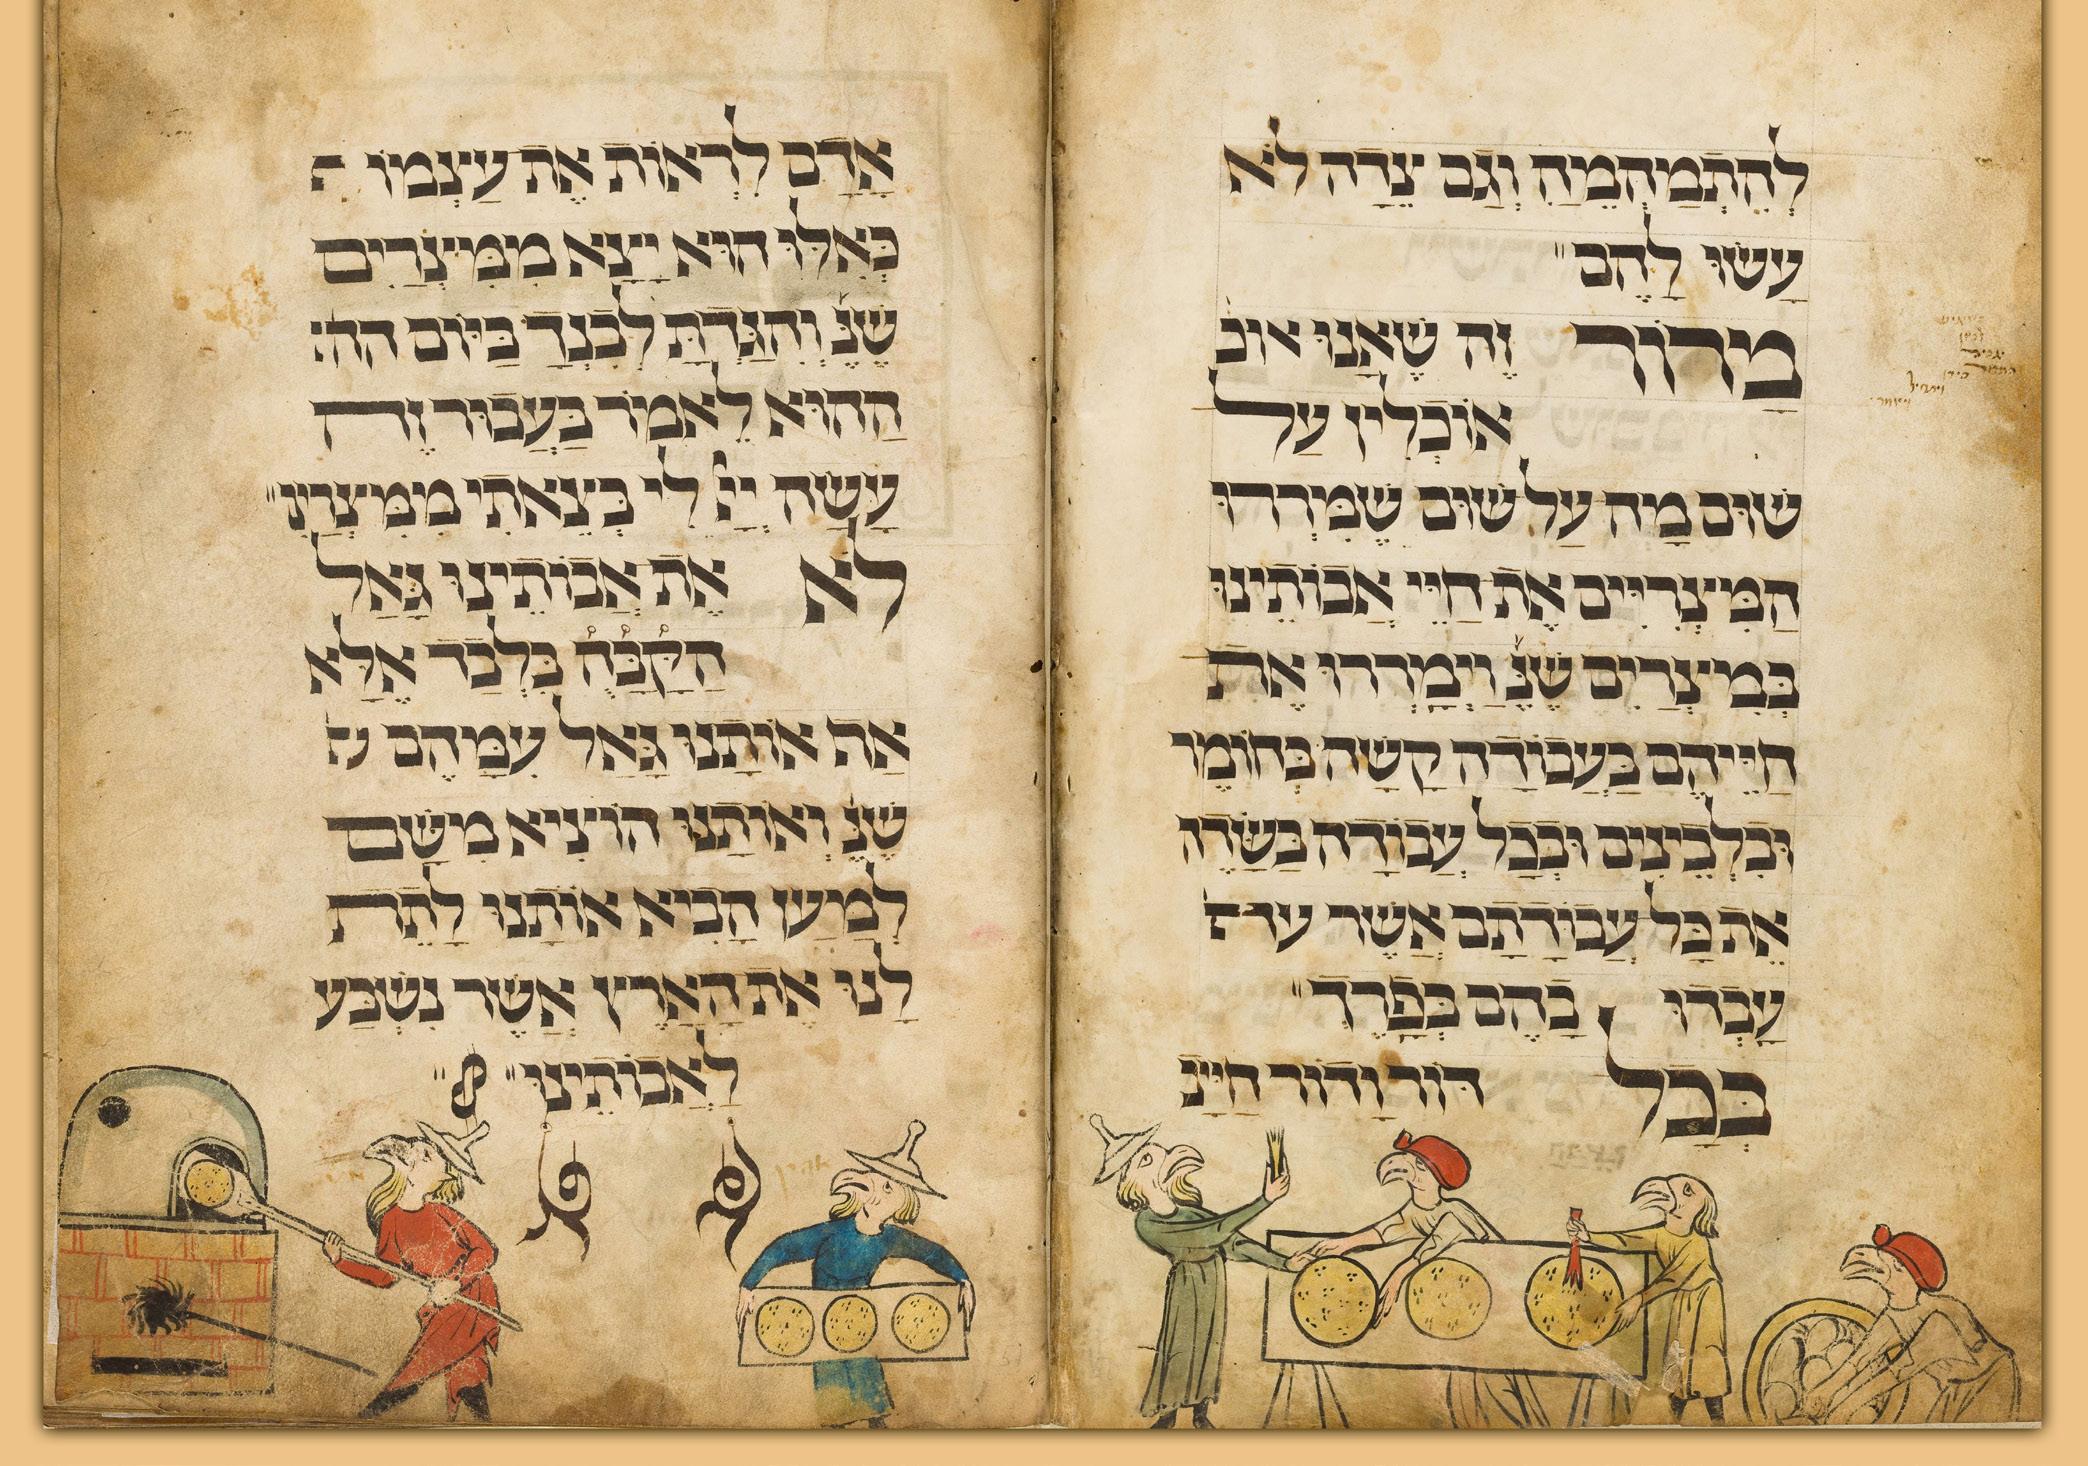 לְהִתְמַהְמֵהַּ וְגַם צֵדָה לֹא
עָשׂוּ לָהֶם
מָרוֹר זֶה שֶׁאָנוּ אוכ
אוֹכְלִין עַל
שׁוּם מָה עַל שׁוּם שֶׁמֵּרְרוּ
הַמִּצְרִיִּים אֶת חַיֵּי אֲבוֹתֵינוּ
בְּמִצְרַיִם שֶׁנֶּ וַיְמָרְרוּ אֶת
חַיֵּיהֶם בַּעֲבוֹדָה קָשָׁה בְּחוֹמֶר
וּבִלְבֵינִים וּבְכָל עֲבוֹדָה בַּשָּׂדֶה
אֵת כָּל עֲבוֹדָתָם אֲשֶׁר
עָבְדוּ בָהֶם בְּפָרֶךְ
בְּכָל דּוֹר וָדוֹר חַיָּיב
אָדָם לִרְאוֹת אֶת עַצְמוֹ
כְּאִלּוּ הוּא יָצָא מִמִּצְרַיִם
שֶׁנֶּ וְהִגַּדְתָּ לְבִנְךָ בַּיּוֹם הה
הַהוּא לֵאמֹר בַּעֲבוּר זֶה
עָשָׂה יְיָ לִי בְּצֵאתִי מִמִּצְרַיִם
לֹא אֶת אֲבוֹתֵינוּ גָּאַל
הַקָּבָּהֿ בִּלְבַד אֶלָּא
אַף אוֹתָנוּ גָּאַל עִמָּהֶם
שֶׁנֶּ וְאוֹתָנוּ הוֹצִיא מִשָּׁם
לְמַעַן הָבִיא אוֹתָנוּ לָתֵת
לָנוּ אֶת הָאָרֶץ אֲשֶׁר נִשְׁבַּע
לַאֲבוֹתֵינוּ